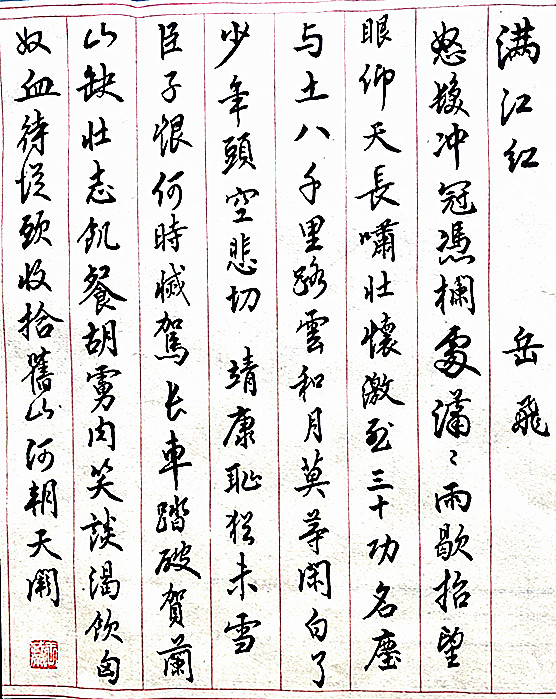 满江红 岳飛
怒髮冲冠憑欄處瀟〻雨歇抬望
眼仰天長嘯壮懷激烈三十功名塵
与土八千里路雲和月莫等闲白了
少年頭空悲切 靖康恥猶未雪
臣子恨何時滅駕长車踏破賀蘭
山缺壮志飢餐胡虜肉笑談渴飲匈
奴血待從頭收拾舊山河朝天闕